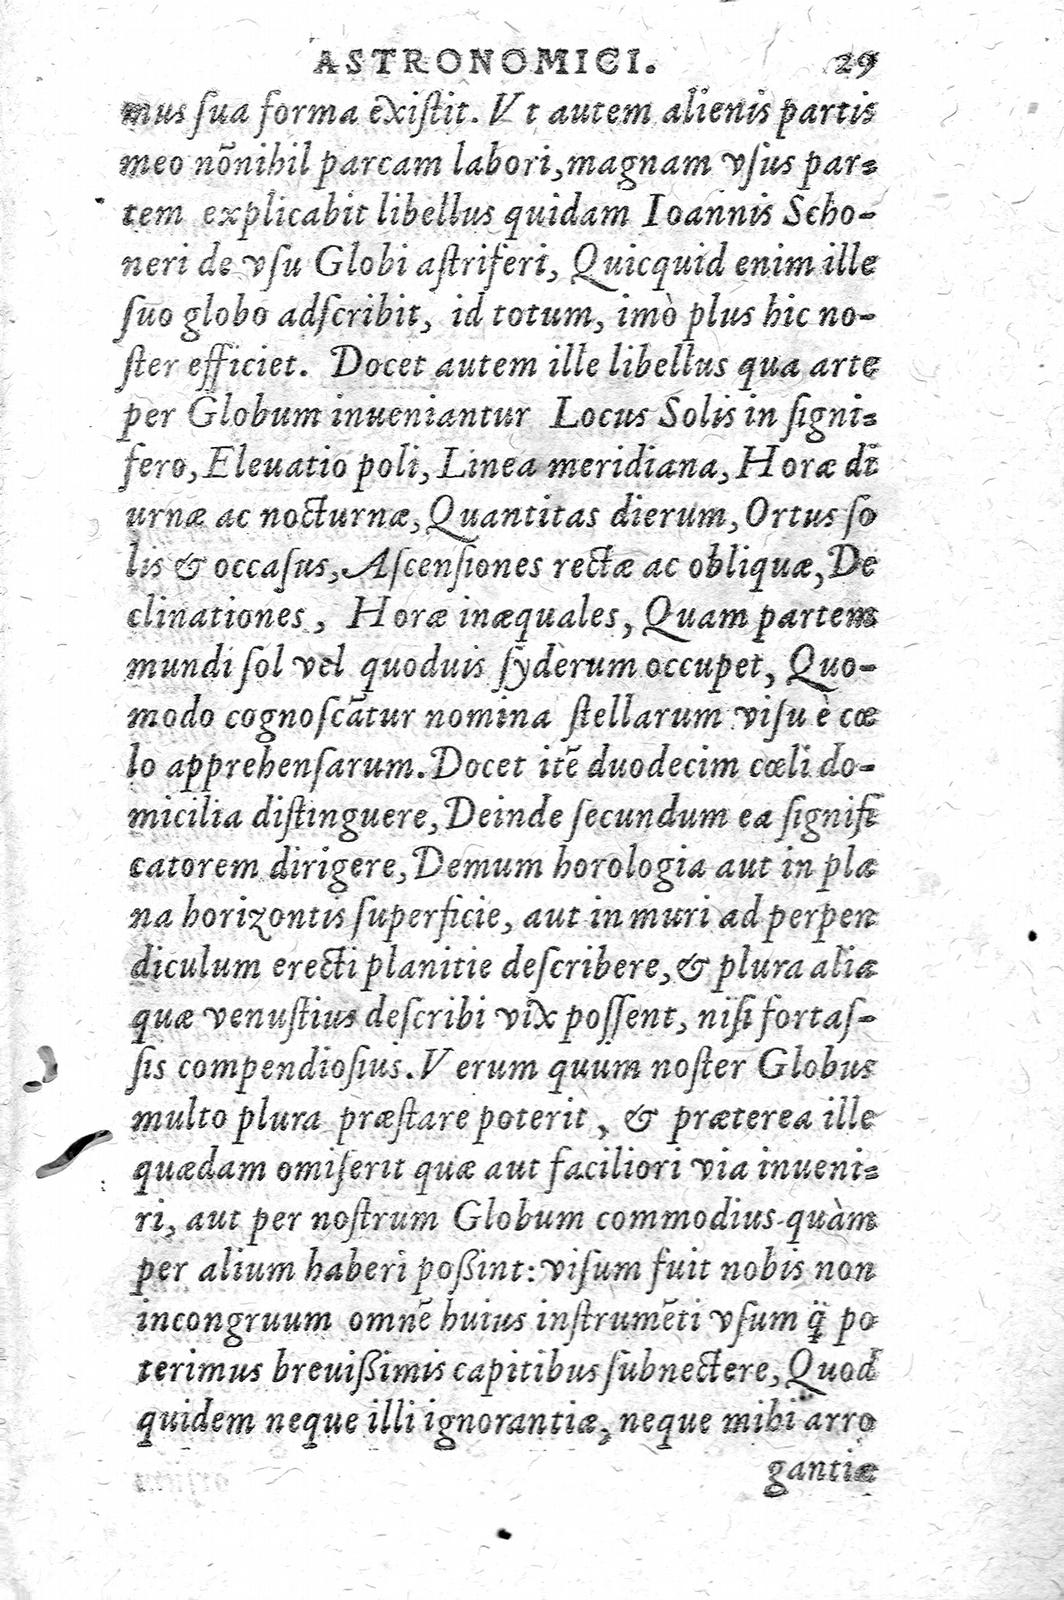 ASTRONOMICI. 29
mus ſua forma exiſtit. V t autem alienis partis
meo nõnihil parcam labori, magnam vſus par=
tem explicabit libellus quidam Ioannis Scho-
neri de vſu Globi aſtriferi, Quicquid enim ille
ſuo globo adſcribit, id totum, imò plus hic no-
ſter efficiet. Docet autem ille libellus qua arte
per Globum inueniantur Locus Solis in ſigni=
fero, Eleuatio poli, Linea meridiana, Horæ di
urnæ ac nocturnæ, Quantitas dierum, Ortus ſo
lis & occaſus, Aſcenſiones rectæ ac obliquæ, De
clinationes, Horæ inæquales, Quam partem
mundi ſol vel quoduis ſyderum occupet, Quo-
modo cognoſcãtur nomina ſtellarum viſu è cœ
lo apprehenſarum. Docet itẽ duodecim cœli do-
micilia diſtinguere, Deinde ſecundum ea ſignifi
catorem dirigere, Demum horologia aut in pla
na horizontis ſuperficie, aut in muri ad perpen
diculum erecti planitie deſcribere, & plura alia
quæ venuſtius deſcribi vix poſſent, niſi fortaſ-
ſis compendioſius. V erum quum noſter Globus
multo plura præſtare poterit, & præterea ille
quædam omiſerit quæ aut faciliori via inueni=
ri, aut per noſtrum Globum commodius quàm
per alium haberi poßint: viſum fuit nobis non
incongruum omnẽ huius inſtrumẽti vſum q̃ po
terimus breuißimis capitibus ſubnectere, Quod
quidem neque illi ignorantiæ, neque mihi arro
gantiæ